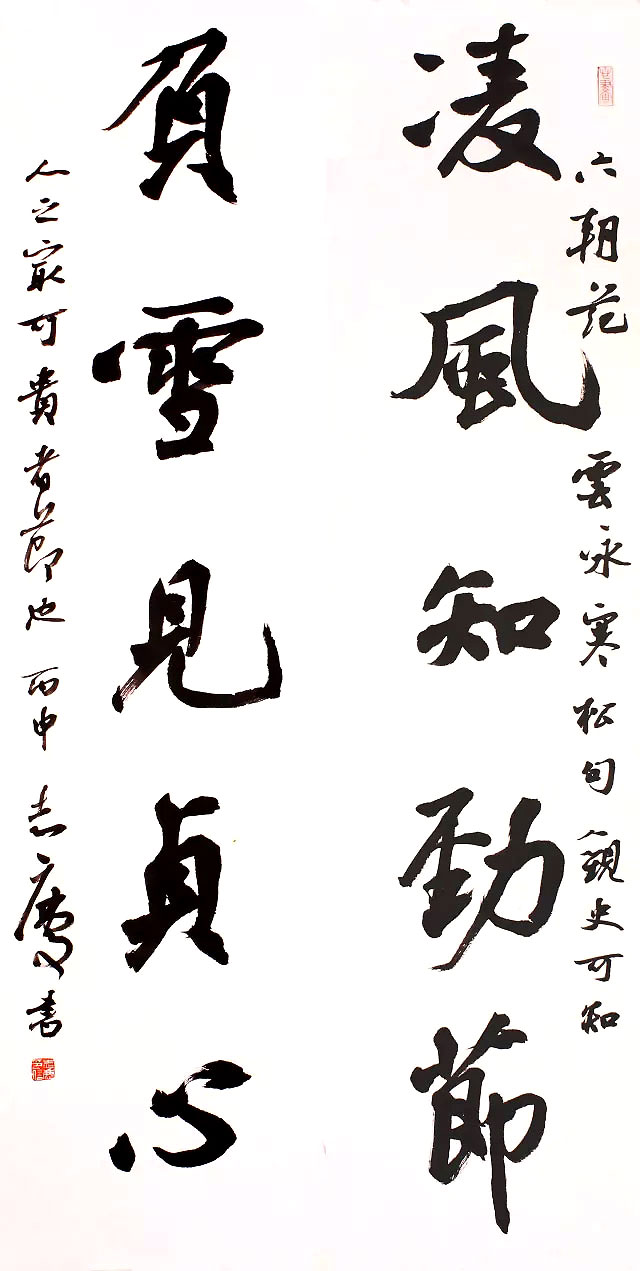 六朝范雲咏寒松句觀史可知
凌風知勁節
負雪見貞心
人之最可貴者節也丙申志慶書